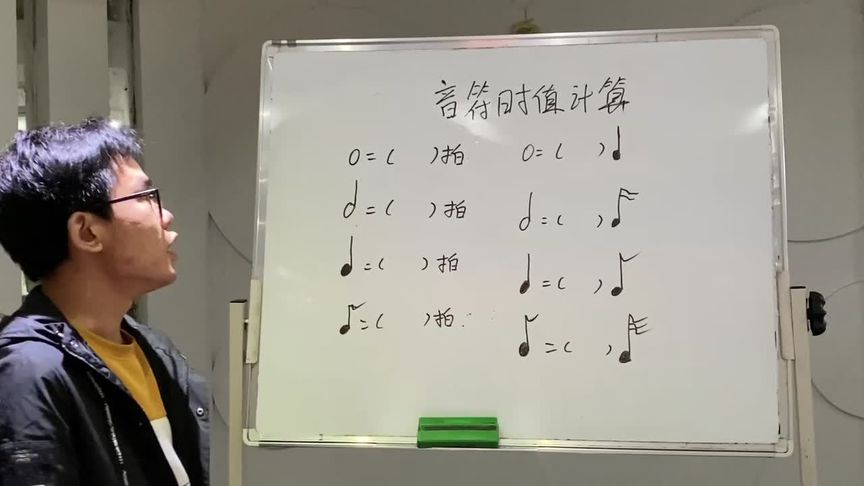 音符时值计算
𝅝 = ( )拍
𝅗𝅥 = ( )拍
♩ = ( )拍
♪ = ( )拍
𝅝 = ( )♩
𝅗𝅥 = ( )𝅘𝅥𝅯
♩ = ( )♪
♪ = ( )𝅘𝅥𝅰